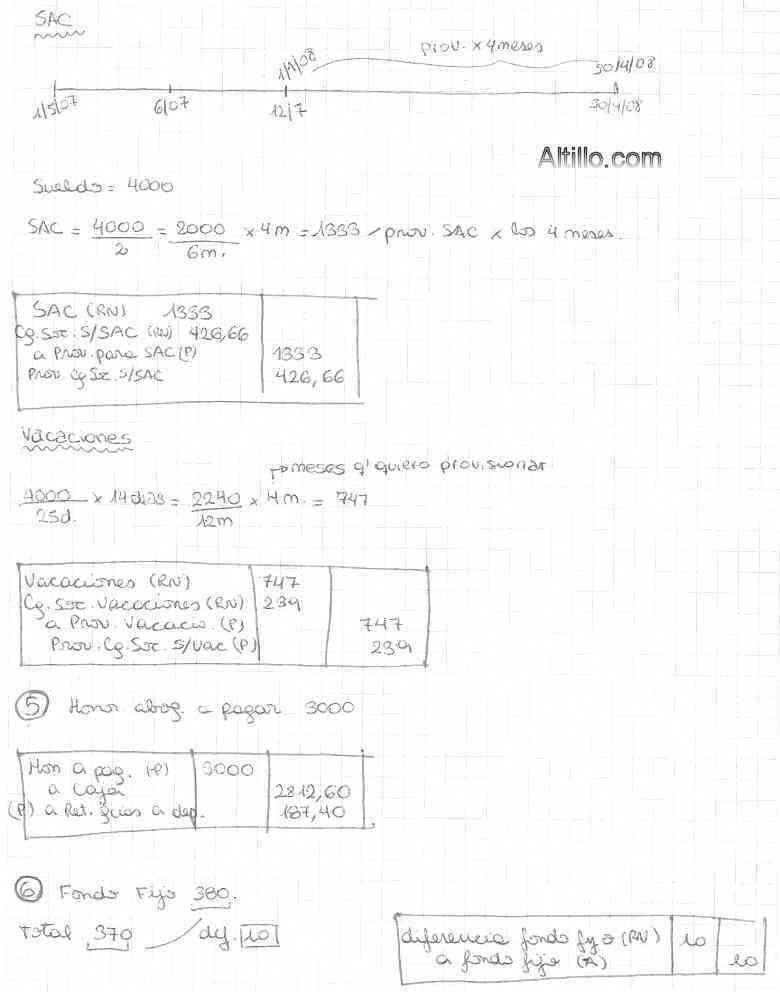 SAC
prov. x 4 meses
1/1/08
30/4/08
1/5/07
6/07
12/7
30/4/08
Altillo.com
Sueldo = 4000
SAC = 4000 = 2000 x 4m = 1333 / prov. SAC x los 4 meses.
2
6m.
SAC (RN) 1333
Cg. Soc. S/SAC (RN) 426,66
a Prov. para SAC (P) 1333
Prov. Cg Soc. S/SAC 426,66
Vacaciones
→ meses q' quiero provisionar
4000 x 14 dias = 2240 x 4m. = 747
25d.
12m
Vacaciones (RN) 747
Cg. Soc. Vacaciones (RN) 239
a Prov. Vacacio. (P) 747
Prov. Cg. Soc. S/Vac (P) 239
5 Honor abog. a pagar 3000
Hon a pag. (P) 3000
a Caja 2812,60
(P) a Ret. gcias a dep. 187,40
6 Fondo Fijo 380.
Total 370 dif. 10
diferencia fondo fijo (RN) 10
a fondo fijo (A) 10